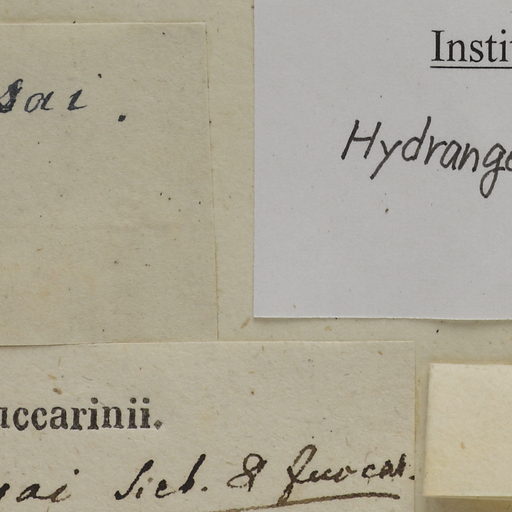 sai.
Instit
Hydrange
uccarinii.
sai Sieb. & Zuccar.